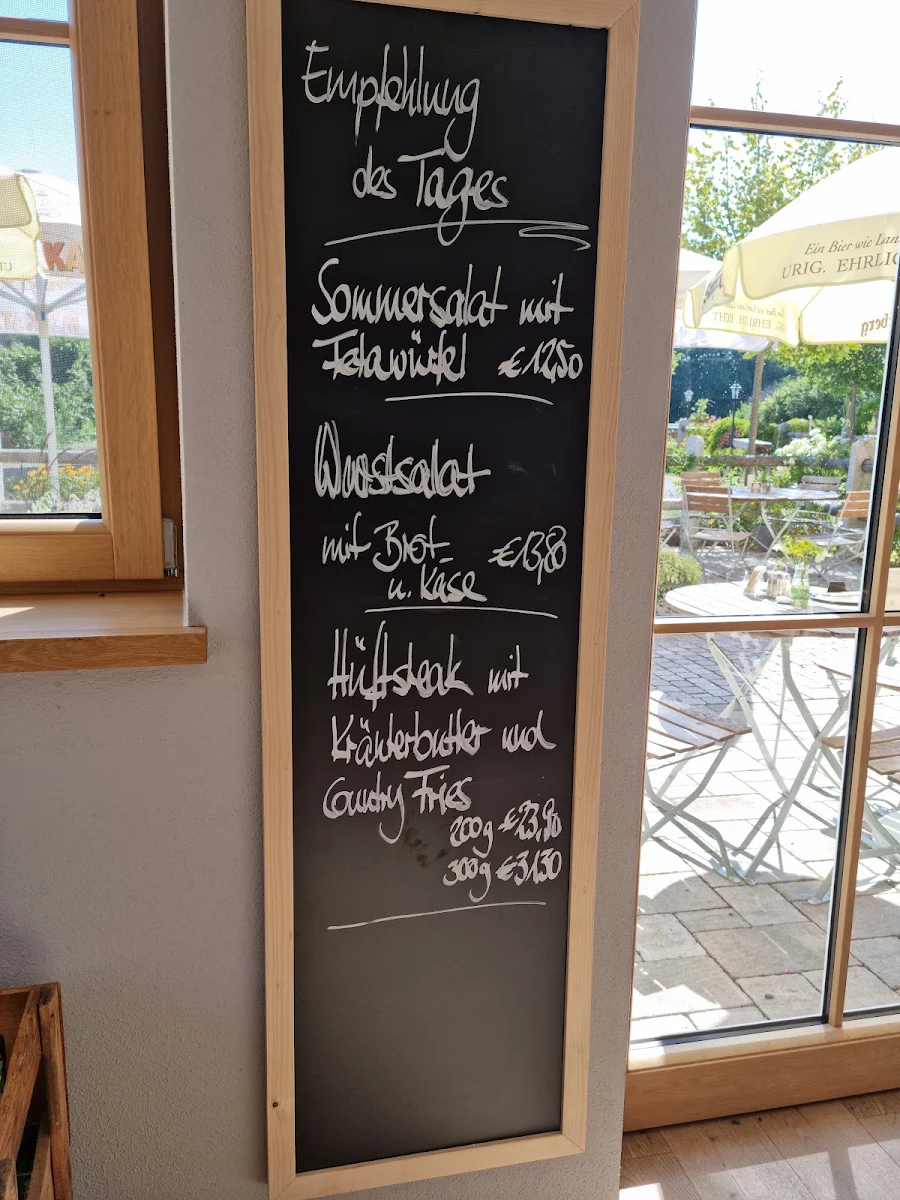 Empfehlung
des Tages
Sommersalat mit
Fetawürfel €12,50
Wurstsalat
mit Brot
u. Käse €13,80
Hüftsteak mit
Kräuterbutter und
Country Fries
200g €23,90
300g €31,30
KA
Ein Bier wie
URIG. EHRLIC
berg